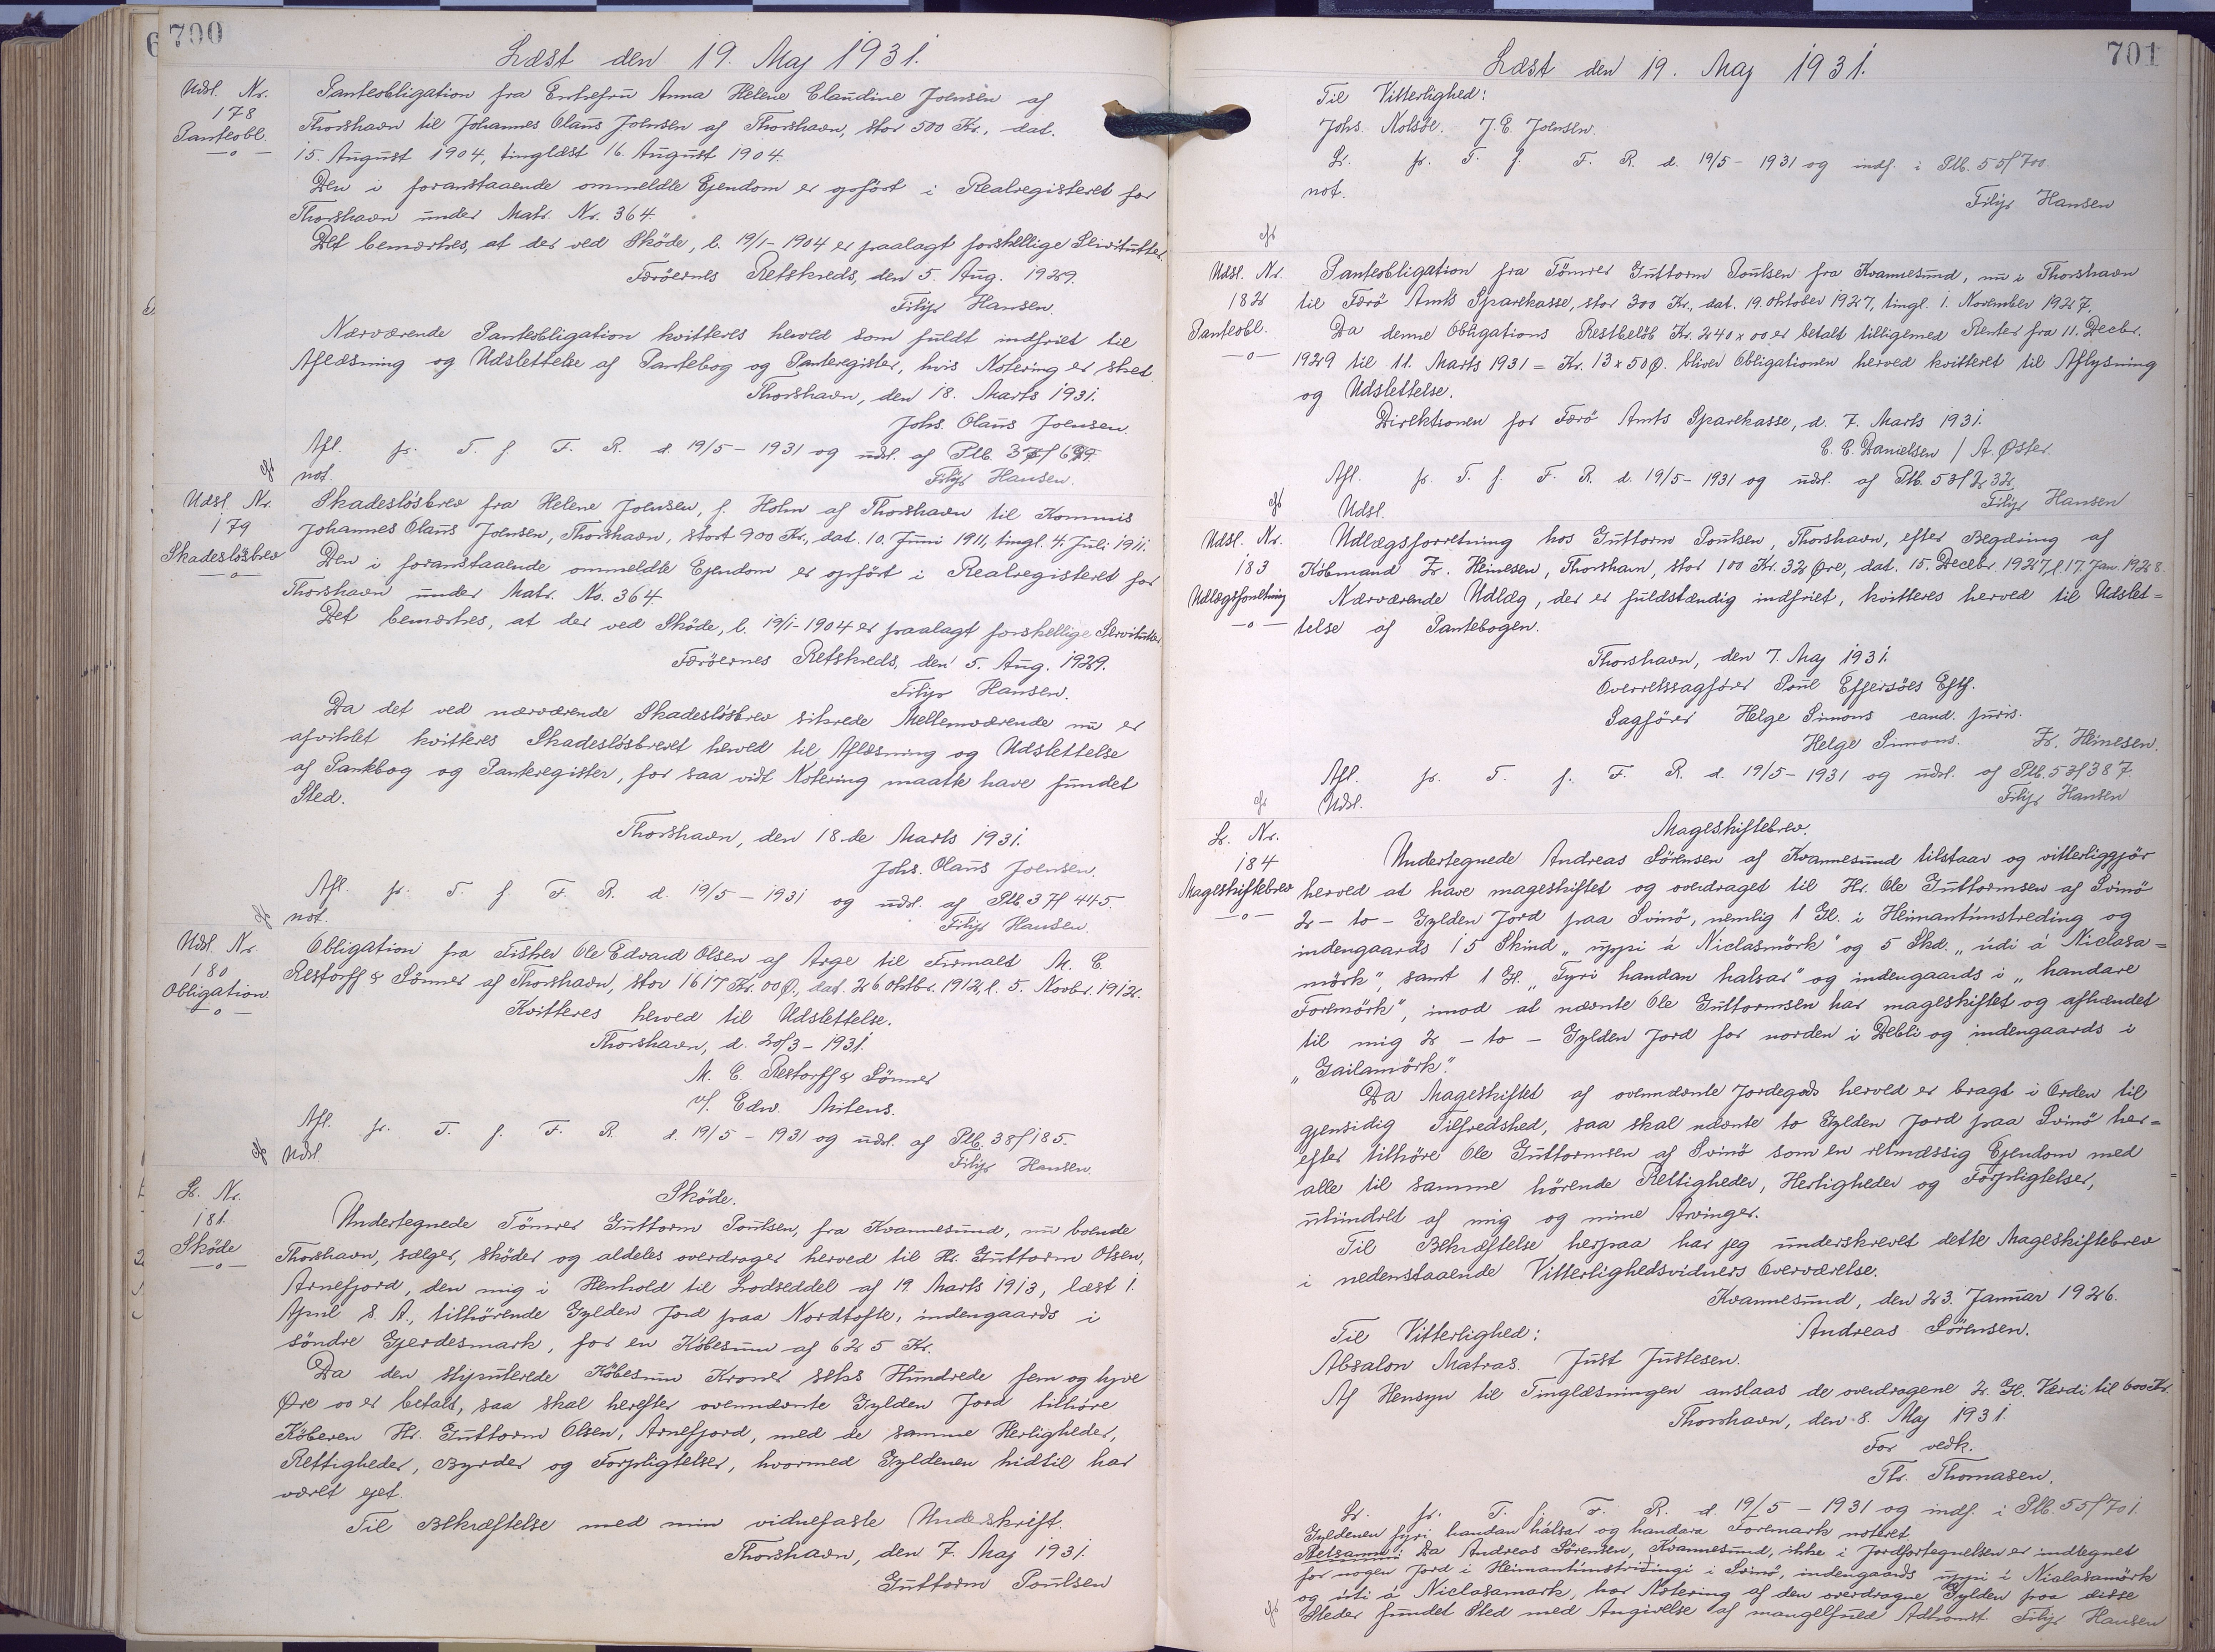 700
Læst den 19. Maj 1931.
Udsl. Nr.
178
Panteobl.
Panteobligation fra Enkefru Anna Helene Claudine Joensen af
Thorshavn til Johannes Olaus Joensen af Thorshavn, stor 500 Kr., dat.
15. August 1904, tinglæst 16. August 1904.
Den i foranstaaende ommeldte Ejendom er opført i Realregisteret for
Thorshavn under Matr. Nr. 364.
Det bemærkes, at der ved Skøde, l. 19/1-1904 er paalagt forskellige Servitutter.
Færøernes Retskreds, den 5. Aug. 1929.
Filip Hansen.
Nærværende Panteobligation kvitteres herved som fuldt indfriet til
Aflæsning og Udslettelse af Pantebog og Panteregister, hvis Notering er sket.
Thorshavn, den 18. Marts 1931.
Johs. Olaus Joensen.
Afl. p. T. f. F. R. d. 19/5 - 1931 og udsl. af Ptb.
not.
Filip Hansen.
Udsl. Nr.
179
Skadesløsbrev
Skadesløsbrev fra Helene Joensen, f. Holm af Thorshavn til Kommis
Johannes Olaus Joensen, Thorshavn, stort 900 Kr., dat. 10. Juni 1911, tingl. 4. Juli 1911.
Den i foranstaaende ommeldte Ejendom er opført i Realregisteret for
Thorshavn under Matr. No. 364.
Det bemærkes, at der ved Skøde, l. 19/1-1904 er paalagt forskellige Servitutter
Færøernes Retskreds, den 5. Aug. 1929.
Filip Hansen.
Da det ved nærværende Skadesløsbrev sikrede Mellemværende nu er
afviklet kvitteres Skadesløsbrevet herved til Aflæsning og Udslettelse
af Pantbog og Panteregister, for saa vidt Notering maatte have fundet
Sted.
Thorshavn, den 18.de Marts 1931.
Johs. Olaus Joensen.
Afl. p. T. f. F. R. d. 19/5 - 1931 og udsl. af Ptb. 37/445.
not.
Filip Hansen.
Udsl. Nr.
180
Obligation
Obligation fra Fisker Ole Edvard Olsen af Arge til Firmaet M. C.
Restorff & Sønner af Thorshavn, stor 1617 Kr. 00 Ø., dat. 26. Oktbr. 1912, l. 5. Novbr. 1912.
Kvitteres herved til Udslettelse.
Thorshavn, d. 20/3 - 1931.
M. C. Restorff & Sønner
v/. Edw. Mitens.
Afl. p. T. f. F. R. d. 19/5 - 1931 og udsl. af Ptb. 38/185.
Udsl.
Filip Hansen.
L. Nr.
181.
Skøde
Skøde.
Undertegnede Tømrer Guttorm Poulsen, fra Kvannesund, nu boende
Thorshavn, sælger, skøder og aldeles overdrager herved til Hr. Guttorm Olsen,
Arnefjord, den mig i Henhold til Lodseddel af 19. Marts 1913, læst 1.
April s. A., tilhørende Gylden Jord paa Nordtofte, indengaards i
søndre Gjerdesmark, for en Købesum af 625 Kr.
Da den stipulerede Købesum Kroner seks Hundrede fem og tyve
Øre 00 er betalt, saa skal herefter ovennævnte Gylden Jord tilhøre
Køberen Hr. Guttorm Olsen, Arnefjord, med de samme Herligheder,
Rettigheder, Byrder og Forpligtelser, hvormed Gyldenen hidtil har
været ejet.
Til Bekræftelse med min vidnefaste Underskrift.
Thorshavn, den 7. Maj 1931.
Guttorm Poulsen
701
Læst den 19. Maj 1931.
Til Vitterlighed:
Johs. Nolsøe. J. E. Joensen.
L. p. T. f. F. R. d. 19/5 - 1931 og indf. i Ptb. 55/700
not.
Filip Hansen
Udsl. Nr.
182
Panteobl.
Panteobligation fra Tømrer Guttorm Poulsen fra Kvannesund, nu i Thorshavn
til Færø Amts Sparekasse, stor 300 Kr., dat. 19. Oktober 1927, tingl. 1. November 1927.
Da denne Obligations Restbeløb Kr. 240 x 00 er betalt tilligemed Renter fra 11. Decbr.
1929 til 11. Marts 1931 = Kr. 13 x 50 Ø. bliver Obligationen herved kvitteret til Aflysning
og Udslettelse.
Direktionen for Færø Amts Sparekasse, d. 7. Marts 1931.
C. C. Danielsen / A. Øster.
Afl. p. T. f. F. R. d. 19/5 - 1931 og udsl. af Ptb. 53/232.
Udsl.
Filip Hansen
Udsl. Nr.
183
Udlægsforretning
Udlægsforretning hos Guttorm Poulsen, Thorshavn, efter Begæring af
Købmand Z. Heinesen, Thorshavn, stor 100 Kr. 32 Øre, dat. 15. Decbr. 1927, l. 17. Jan. 1928.
Nærværende Udlæg, der er fuldstændig indfriet, kvitteres herved til Udslet=
telse af Pantebogen.
Thorshavn, den 7. Maj 1931.
Overretssagfører Poul Effersøes Eftf.
Sagfører Helge Simons cand. juris.
Helge Simons. Z. Heinesen.
Afl. p. T. f. F. R. d. 19/5 - 1931 og udsl. af Ptb. 53/387.
Udsl.
Filip Hansen
L. Nr.
184
Mageskiftebrev
Mageskiftebrev.
Undertegnede Andreas Sørensen af Kvannesund tilstaar og vitterliggjør
herved at have mageskiftet og overdraget til Hr. Ole Guttormsen af Svinø
2 - to - Gylden Jord paa Svinø, nemlig 1 Gl. i Heimantúnstreding og
indengaards 15 Skind „uppi á Niclasmörk" og 5 Skd. „úti á Niclasa=
mörk", samt 1 Gl. „Fyri handan halsar" og indengaards i „handare
Foremörk", imod at nævnte Ole Guttormsen har mageskiftet og afhændet
til mig 2 - to - Gylden Jord for norden i Depli og indengaards i
„Gailamörk".
Da Mageskiftet af ovennævnte Jordegods herved er bragt i Orden til
gjensidig Tilfredshed, saa skal nævnte to Gylden Jord paa Svinø her=
efter tilhøre Ole Guttormsen af Svinø som en retmæssig Ejendom med
alle til samme hørende Rettigheder, Herligheder og Forpligtelser,
uhindret af mig og mine Arvinger.
Til Bekræftelse herpaa har jeg underskrevet dette Mageskiftebrev
i nedenstaaende Vitterlighedsvidners Overværelse.
Kvannesund, den 23. Januar 1926.
Til Vitterlighed: Andreas Sørensen.
Absalon Matras. Just Justesen.
Af Hensyn til Tinglæsningen anslaas de overdragene 2 Gl. Værdi til 600 Kr.
Thorshavn, den 8. Maj 1931.
For vedk.
Th. Thomasen.
L. p. T. f. F. R. d. 19/5 - 1931 og indf. i Ptb. 55/701.
Gyldenen fyri handan hálsar og handara Foremark noteret.
Retsanm: Da Andreas Sørensen, Kvannesund, ikke i Jordfortegnelsen er indtegnet
for nogen Jord i Heimantúnstriðingi i Svinø, indengaards uppi á Niclasamörk
og úti á Niclasamark, har Notering af den overdragne Gylden paa disse
Steder fundet Sted med Angivelse af mangelfuld Adkomst. Filip Hansen